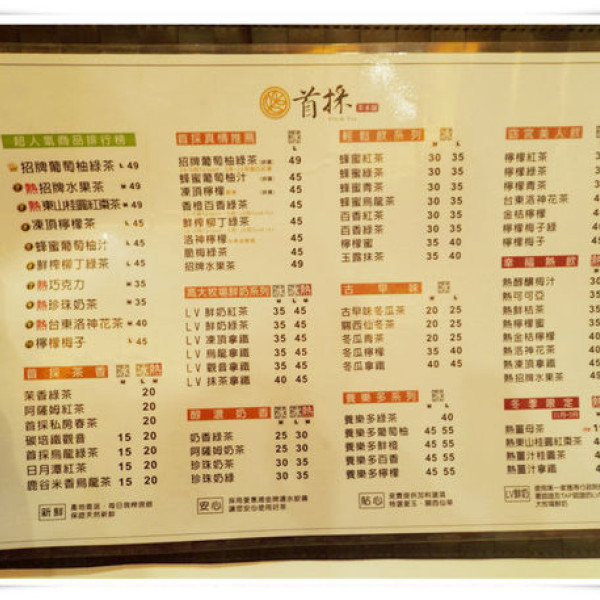 首採
超人氣商品排行榜
招牌葡萄柚綠茶 L 49
熱招牌水果茶 M 49
熱東山桂圓紅棗茶 M 49
凍頂檸檬茶 L 45
蜂蜜葡萄柚汁 L 45
鮮榨柳丁綠茶 L 45
熱巧克力 M 35
熱珍珠奶茶 M 35
熱台東洛神花茶 M 40
檸檬梅子 L 45
首採茶香 冰 冰熱
M L
茉香綠茶 20
阿薩姆紅茶 20
首採私房春茶 20
碳培鐵觀音 15 20
首採烏龍綠茶 15 20
日月潭紅茶 15 20
鹿谷米香烏龍茶 15 20
新鮮
首採真情推薦 冰
招牌葡萄柚綠茶 49
蜂蜜葡萄柚汁 45
凍頂檸檬 45
香橙百香綠茶 45
鮮榨柳丁綠茶 45
洛神檸檬 45
脆梅綠茶 45
招牌水果茶 49
高大牧場鮮奶系列 冰 冰熱
M L
LV 鮮奶紅茶 35 45
LV 鮮奶綠茶 35 45
LV 凍頂拿鐵 35 45
LV 烏龍拿鐵 35 45
LV 觀音拿鐵 35 45
LV 抹茶拿鐵 40 45
醇濃奶香 冰 冰熱
M L
奶香綠茶 25 30
阿薩姆奶茶 25 30
珍珠奶茶 30 35
珍珠奶綠 30 35
安心
輕鬆飲系列 冰
M L
蜂蜜紅茶 30 35
蜂蜜綠茶 30 35
蜂蜜青茶 30 35
蜂蜜烏龍茶 30 35
百香紅茶 30 35
百香綠茶 30 35
檸檬蜜 35 40
玉露抹茶 35 40
古早味 冰
M L
古早味冬瓜茶 20 25
關西仙冬茶 20 25
冬瓜青茶 20 25
冬瓜檸檬 35 40
冬瓜拿鐵 35 40
養樂多系列 冰
M L
養樂多綠茶 40
養樂多葡萄柚 45 55
養樂多鮮橙 45 55
養樂多百香 45 55
養樂多檸檬 45 55
貼心
檸檬紅茶
檸檬綠茶
檸檬青茶
台東洛神花茶
金桔檸檬
檸檬梅子綠
檸檬梅子
幸福熱飲
熱醇釀梅汁 30
熱可可亞 35
熱鮮桔茶 35
熱檸檬蜜 35
熱金桔檸檬 35
熱洛神花茶 40
熱招牌水果茶 49
冬季限定
熱薑母茶
熱東山桂圓紅棗茶
熱薑汁桂圓茶
熱薑汁拿鐵
LV鮮奶